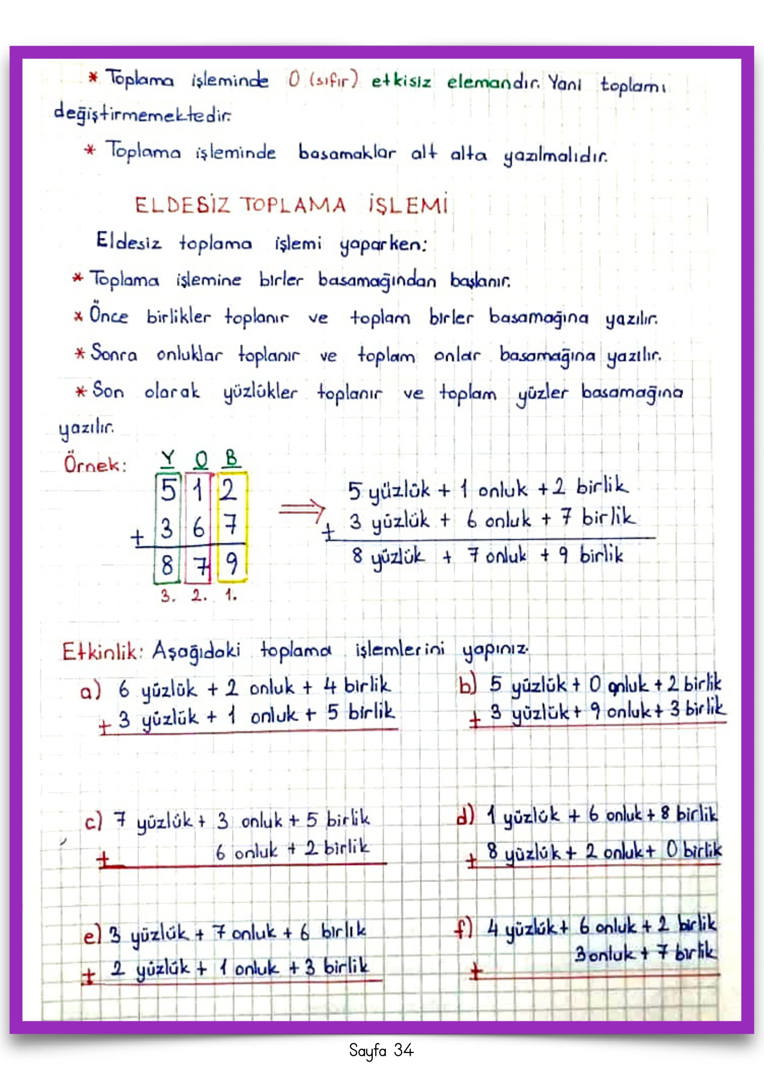 * Toplama işleminde 0 (sıfır) etkisiz elemandır. Yani toplamı
değiştirmemektedir.
* Toplama işleminde basamaklar alt alta yazılmalıdır.
ELDESİZ TOPLAMA İŞLEMİ
Eldesiz toplama işlemi yaparken:
* Toplama işlemine birler basamağından başlanır.
* Önce birlikler toplanır ve toplam birler basamağına yazılır.
* Sonra onluklar toplanır ve toplam onlar basamağına yazılır.
* Son olarak yüzlükler toplanır ve toplam yüzler basamağına
yazılır.
Örnek: Y O B
5 1 2 ⟹ 5 yüzlük + 1 onluk + 2 birlik
+ 3 6 7 + 3 yüzlük + 6 onluk + 7 birlik
8 7 9 8 yüzlük + 7 onluk + 9 birlik
3. 2. 1.
Etkinlik: Aşağıdaki toplama işlemlerini yapınız.
a) 6 yüzlük + 2 onluk + 4 birlik
+ 3 yüzlük + 1 onluk + 5 birlik
b) 5 yüzlük + 0 onluk + 2 birlik
+ 3 yüzlük + 9 onluk + 3 birlik
c) 7 yüzlük + 3 onluk + 5 birlik
+ 6 onluk + 2 birlik
d) 1 yüzlük + 6 onluk + 8 birlik
+ 8 yüzlük + 2 onluk + 0 birlik
e) 3 yüzlük + 7 onluk + 6 birlik
+ 2 yüzlük + 1 onluk + 3 birlik
f) 4 yüzlük + 6 onluk + 2 birlik
+ 3 onluk + 7 birlik
Sayfa 34